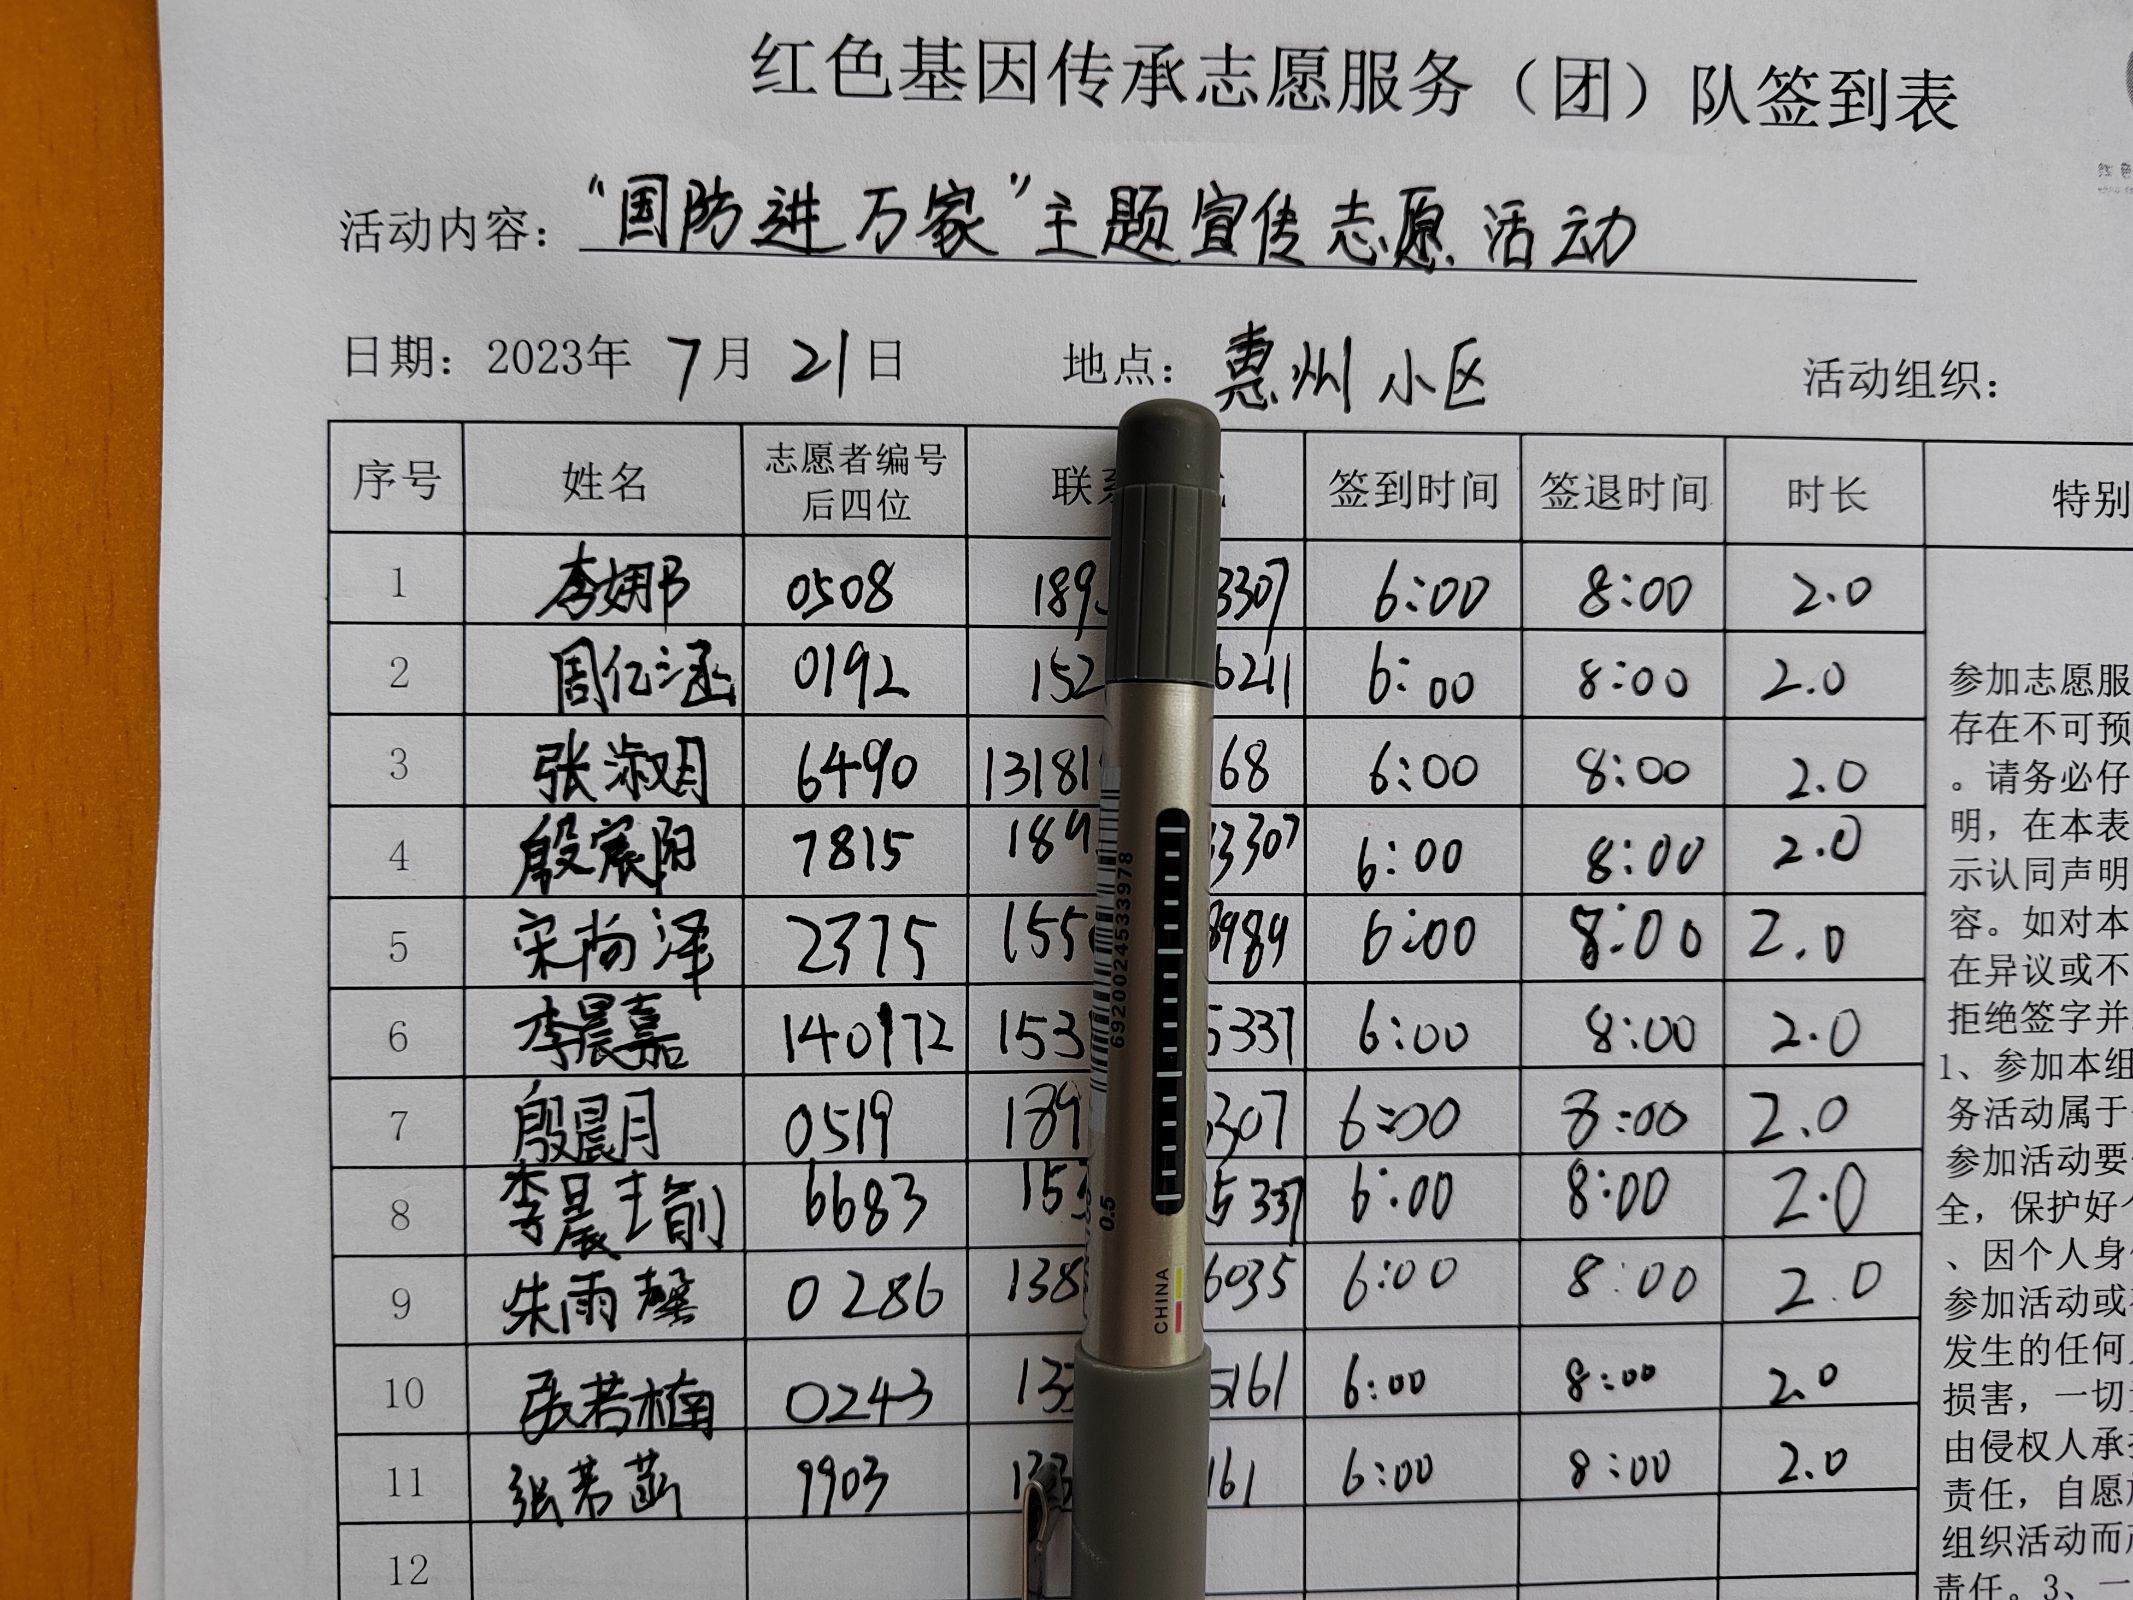 红色基因传承志愿服务（团）队签到表
活动内容："国防进万家"主题宣传志愿活动
日期：2023年 7月 21日 地点：惠州小区 活动组织：
序号 姓名 志愿者编号后四位 联系 签到时间 签退时间 时长 特别
1 李娜 0508 189 3307 6:00 8:00 2.0
2 周亿涵 0192 152 6211 6:00 8:00 2.0
3 张淑明 6490 13181 68 6:00 8:00 2.0
4 殷宸阳 7815 189 3307 6:00 8:00 2.0
5 宋尚泽 2375 155 8989 6:00 8:00 2.0
6 李晨嘉 140172 153 5337 6:00 8:00 2.0
7 殷晨月 0519 189 3307 6:00 8:00 2.0
8 李晨瑜 6683 153 5337 6:00 8:00 2.0
9 朱雨馨 0286 138 6035 6:00 8:00 2.0
10 张若楠 0243 133 5161 6:00 8:00 2.0
11 张若菡 9903 133 161 6:00 8:00 2.0
12
参加志愿服
存在不可预
。请务必仔
明，在本表
示认同声明
容。如对本
在异议或不
拒绝签字并
1、参加本组
务活动属于
参加活动要
全，保护好个
、因个人身
参加活动或
发生的任何
损害，一切
由侵权人承
责任，自愿
组织活动而
责任。3、一
6920024533978
0.5
CHINA